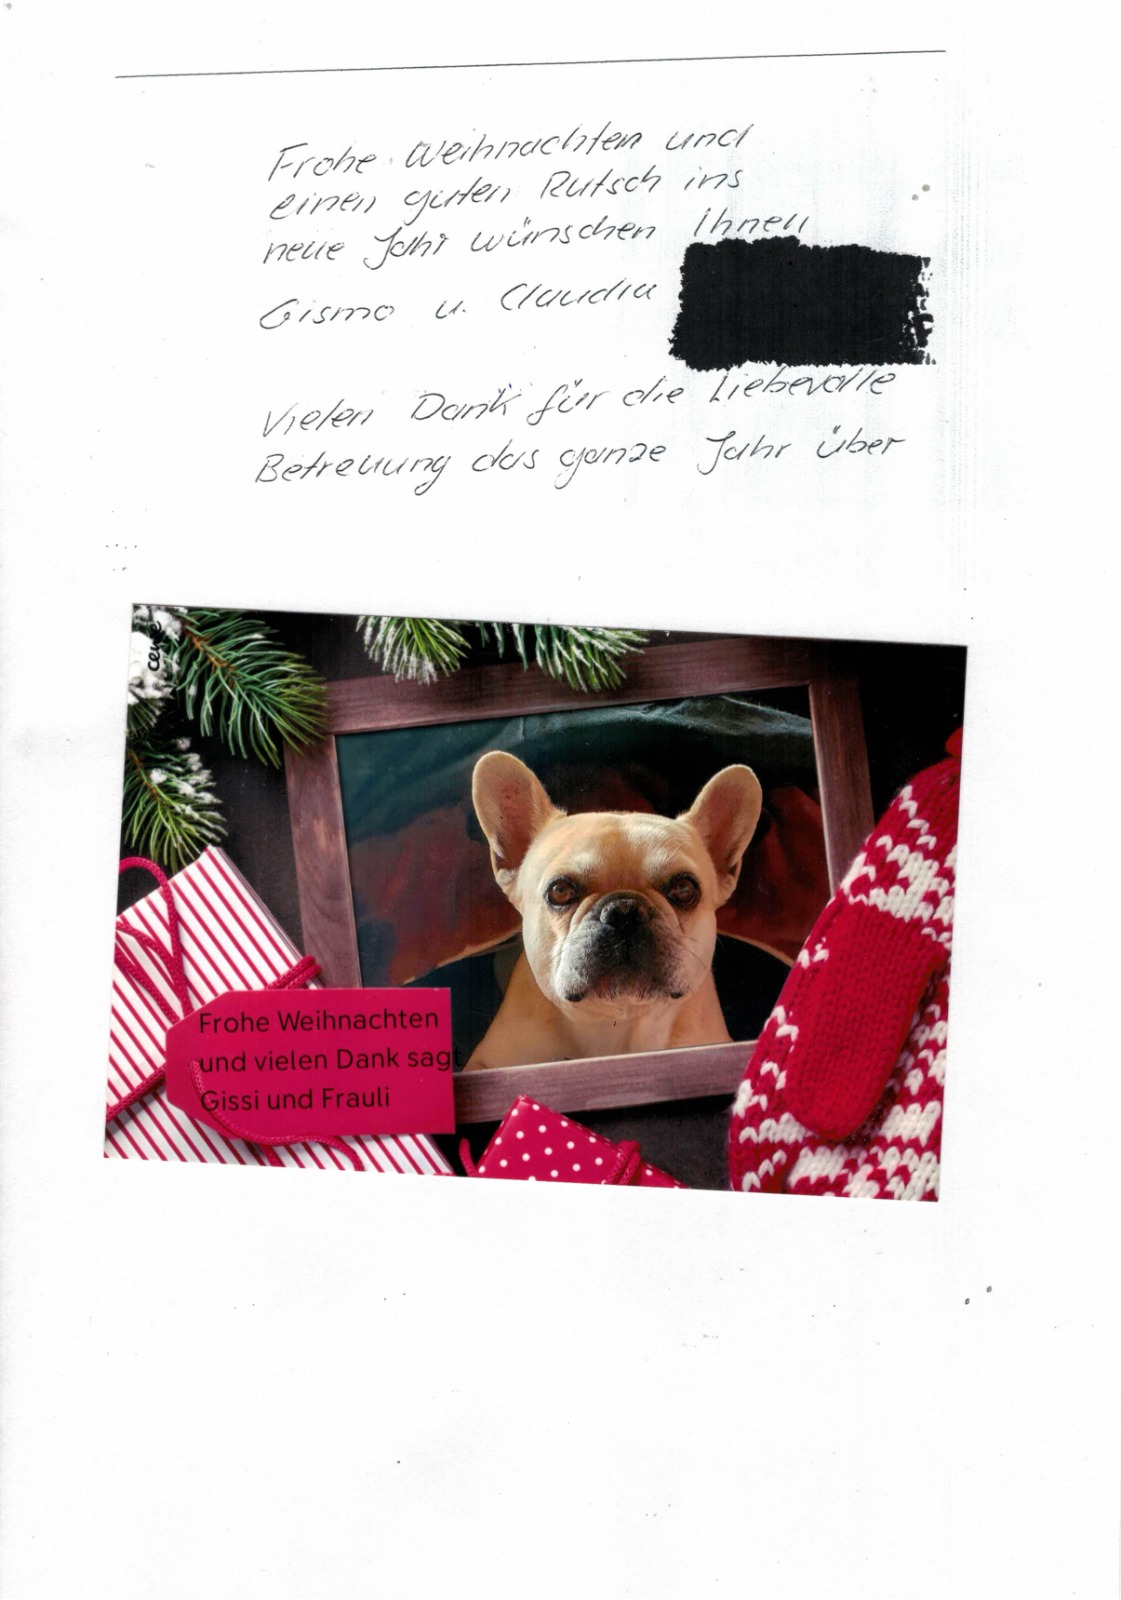 Frohe Weihnachten und
einen guten Rutsch ins
neue Jahr wünschen Ihnen
Gismo u. Claudia
Vielen Dank für die Liebevolle
Betreuung das ganze Jahr über
cewe
Frohe Weihnachten
und vielen Dank sagt
Gissi und Frauli